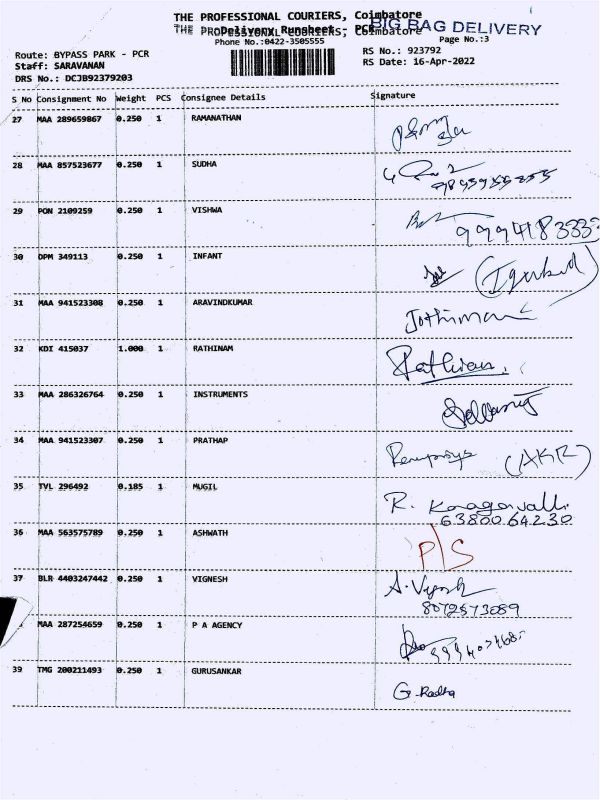 THE PROFESSIONAL COURIERS, Coimbatore
BIG BAG DELIVERY
Delivery Runsheet - PCR
Phone No.:0422-3505555
Page No.:3
Route: BYPASS PARK - PCR
RS No.: 923792
Staff: SARAVANAN
RS Date: 16-Apr-2022
DRS No.: DCJB92379203
S No Consignment No Weight PCS Consignee Details Signature
27 MAA 289659867 0.250 1 RAMANATHAN
28 MAA 857523677 0.250 1 SUDHA
29 PON 2109259 0.250 1 VISHWA
9994183333
30 OPM 349113 0.250 1 INFANT
31 MAA 941523308 0.250 1 ARAVINDKUMAR
Jothimani
32 KDI 415037 1.000 1 RATHINAM
Rathinam.
33 MAA 286326764 0.250 1 INSTRUMENTS
34 MAA 941523307 0.250 1 PRATHAP
(AKR)
35 TVL 296492 0.185 1 MUGIL
R.
63800 64230
36 MAA 563575789 0.250 1 ASHWATH
P/S
37 BLR 4403247442 0.250 1 VIGNESH
A. Vignesh
8072573089
MAA 287254659 0.250 1 P A AGENCY
39 TMG 200211493 0.250 1 GURUSANKAR
G. Radha